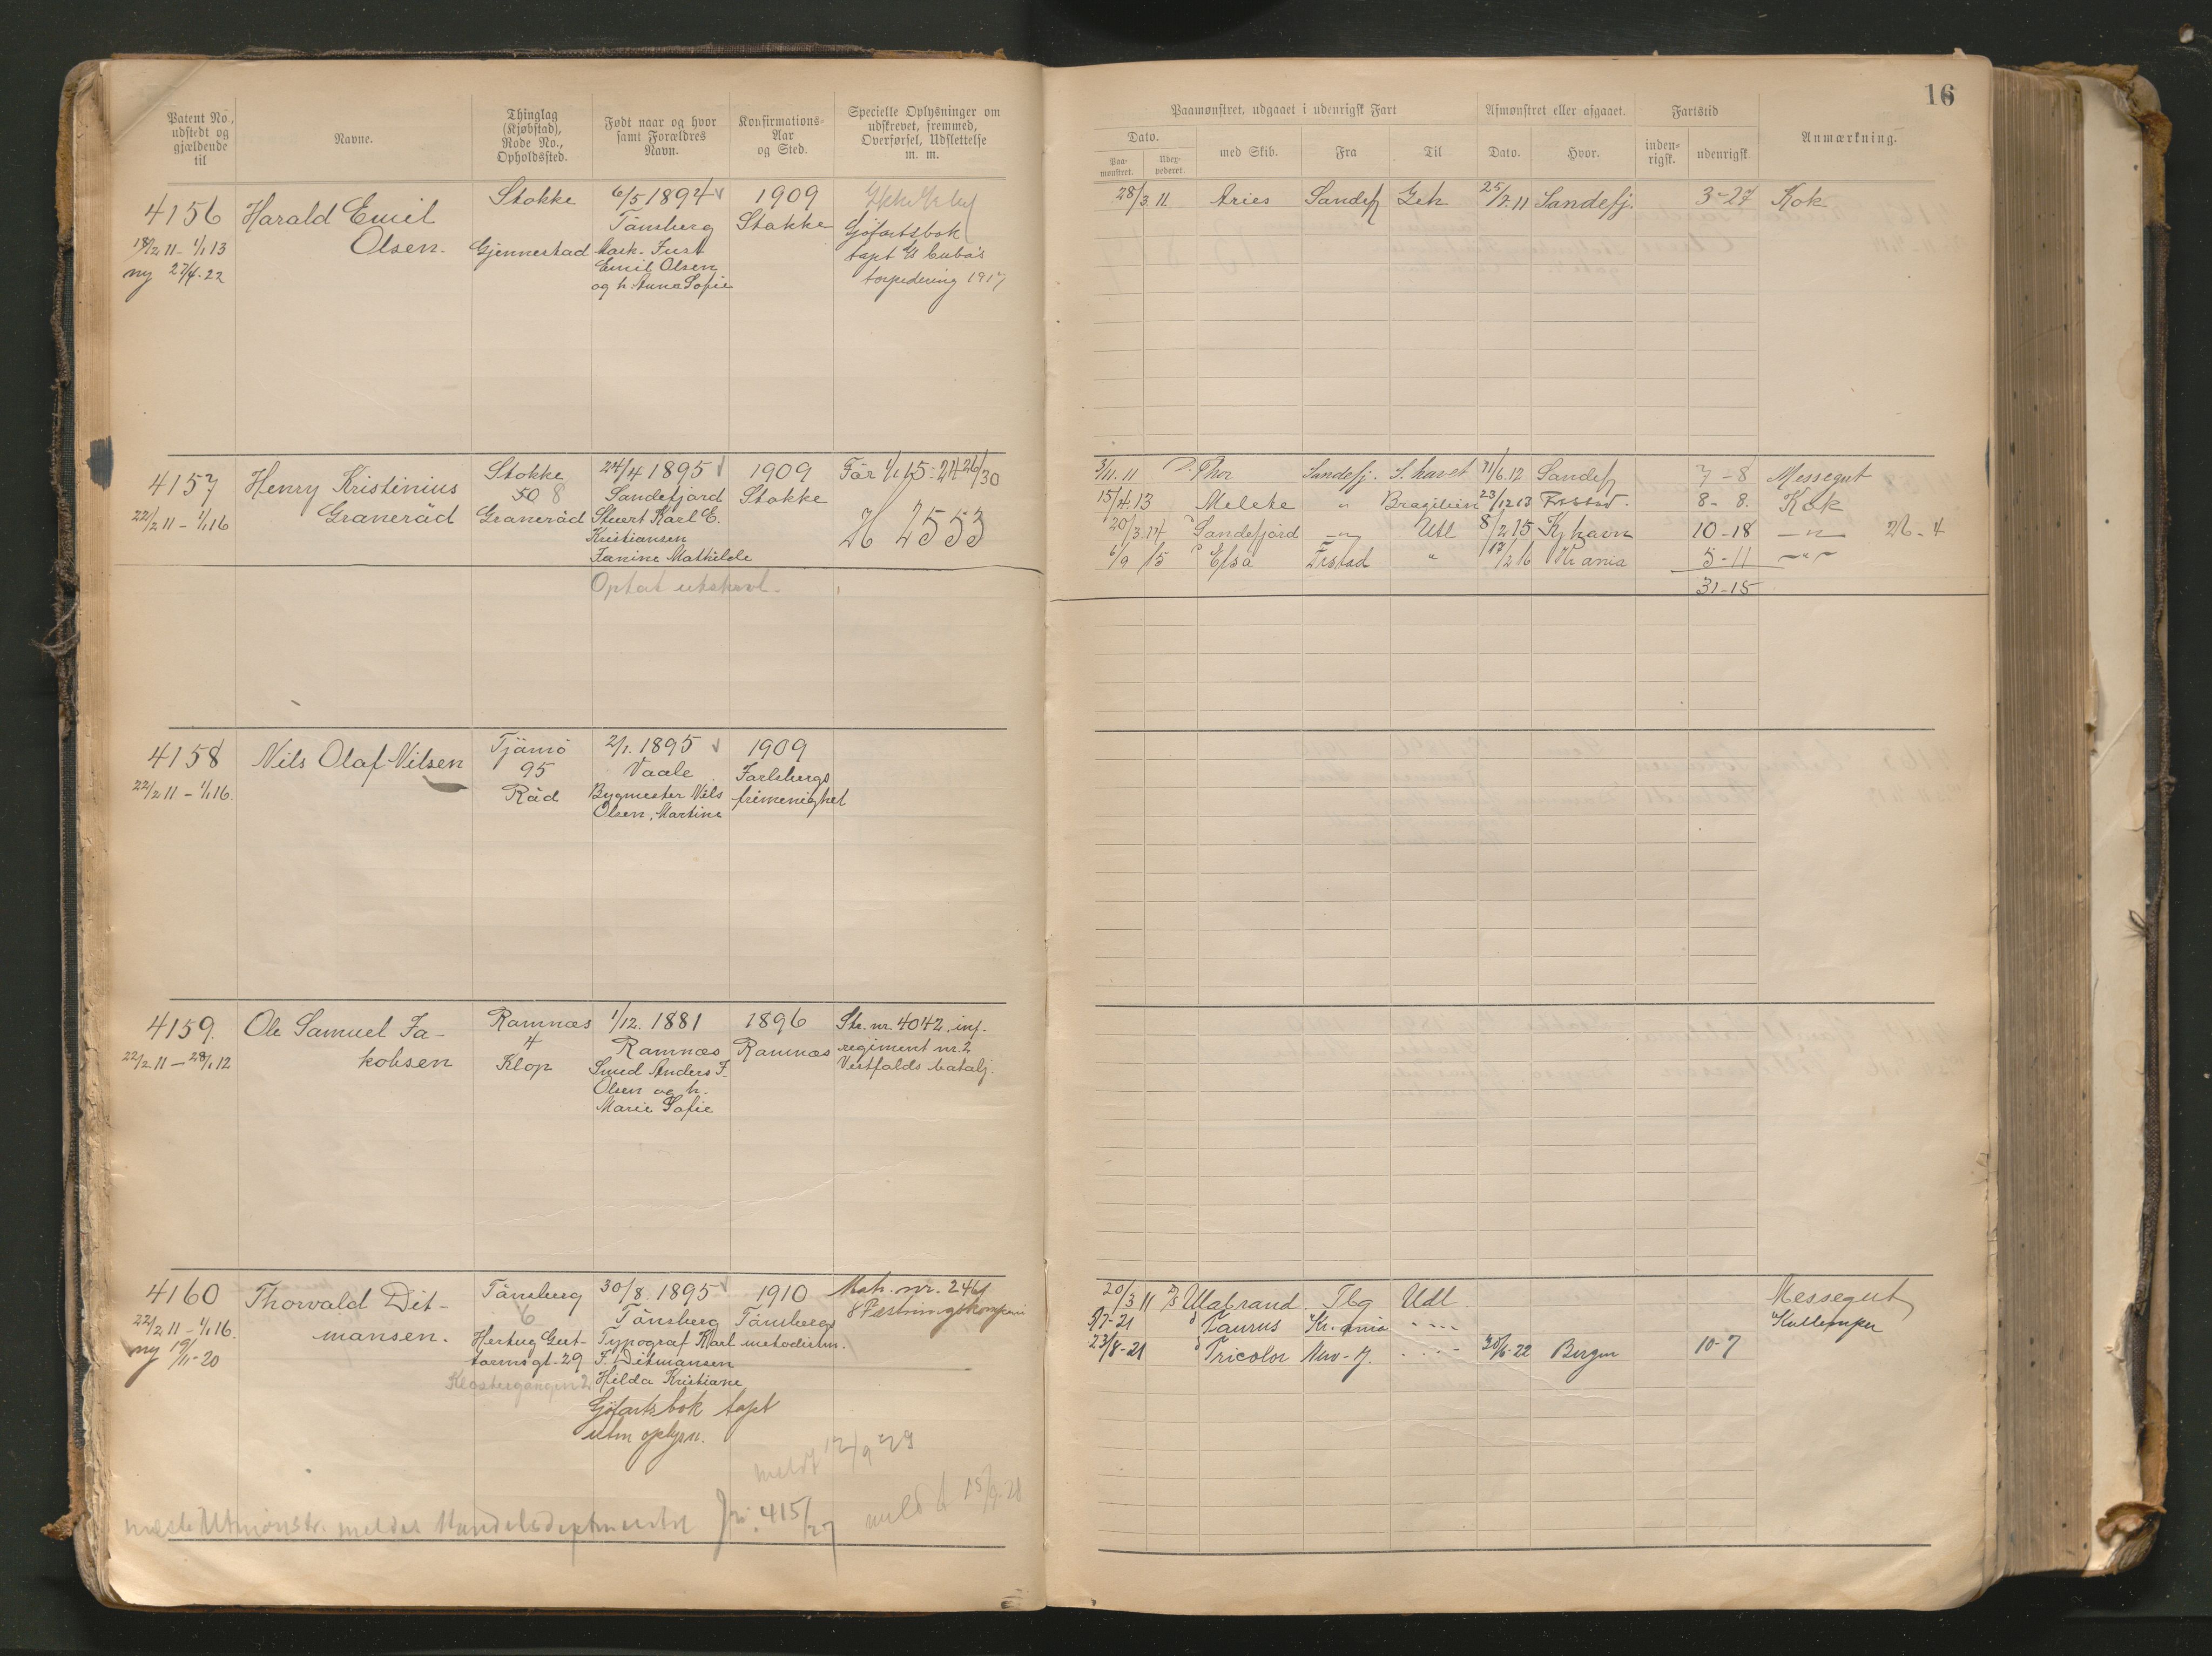 Patent No., udstedt og gjældende til
Navne.
Thinglag (Kjøbstad), Rode No., Opholdssted.
Født naar og hvor samt Forældres Navn.
Konfirmations-Aar og Sted.
Specielle Oplysninger om udskrevet, fremmed, Overførsel, Udslettelse m. m.
4156
18/2 11 - 1/1 13
ny 27/4. 22
Harald Emil
Olsen.
Stokke
Gjennestad
6/5 1894
Tönsberg
Mask. Just
Emil Olsen
og h. Anna Sofie
1909
Stokke
Sjöfartsbok
tapt Cuba's
torpedering 1917
4157
22/2 11 - 1/1 16
Henry Kristinius
Graneröd
Stokke
50 8
Graneröd
24/4 1895
Sandefjord
Stuert Karl E.
Kristiansen
Janine Mathilde
Optat utskrevl.
1909
Stokke
Får 1/1 15: 24 26/30
H 2553
4158
22/2 11 - 1/1 16.
Nils Olaf Nilsen
Tjömö
95
Röd
2/1. 1895
Vaale
Bygmester Nils
Olsen, Martine
1909
Jarlsbergs
frimenighet
4159.
22/2 11 - 28/1 12
Ole Samuel Ja-
kobsen
Ramnæs
4
Klop
1/12. 1881
Ramnæs
Smed Anders J.
Olsen og h.
Marie Sofie
1896
Ramnæs
Str. nr. 4042, inf.
regiment nr. 2
Vestfolds batalj.
4160
22/2 11 - 1/1 16.
ny 19/11-20
Thorvald Dit-
mansen.
Tönsberg
6
Hertug Gut-
tormsgt. 29
Klostergangen 2
30/8. 1895
Tönsberg
Typograf Karl
F. Ditmansen
Hilda Kristiane
Sjöfartsbok tapt
utm oplysn.
1910
Tönsbergs
metodistm.
Matr. nr. 2461
8 Festningskompani
meldt 12/9 29
meldt 15/9. 28
meldes Handelsdepartmentet Jr. 415/27
16
Paamønstret, udgaaet i udenrigsk Fart
Afmønstret eller afgaaet.
Fartstid
Anmærkning.
Dato.
Paa-mønstret.
Uder-pederet.
med Skib.
Fra
Til
Dato.
Hvor.
inden-rigsk.
udenrigsk
28/3 11 Aries Sandefj 25/7. 11 Sandefj. 3-27 Kok
3/11. 11 D. Thor Sandefj. S. havet 11/6. 12 Sandefj 7-8 Messegut
15/4. 13 Melete " Bragilien 23/12 13 8-8. Kok
20/3. 14 D Sandefjord -"- Utl 8/2 15 Kjhavn 10-18 -"- 26-4
6/9 15 D Elsa Frstad " 17/2 16 Kr ania 5-11 -"-
31-15
20/3 11 D/S Ulabrand Tbg Udl Messegut
3/7-21 D Taurus Kr. ania Kullemper
23/8-21 D Tricolor New-Y. 30/6-22 Bergen 10-7